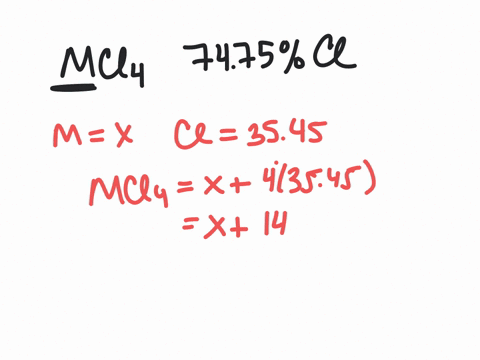 MCl4 74.75% Cl
M = x Cl = 35.45
MCl4 = x + 4(35.45)
= x + 14